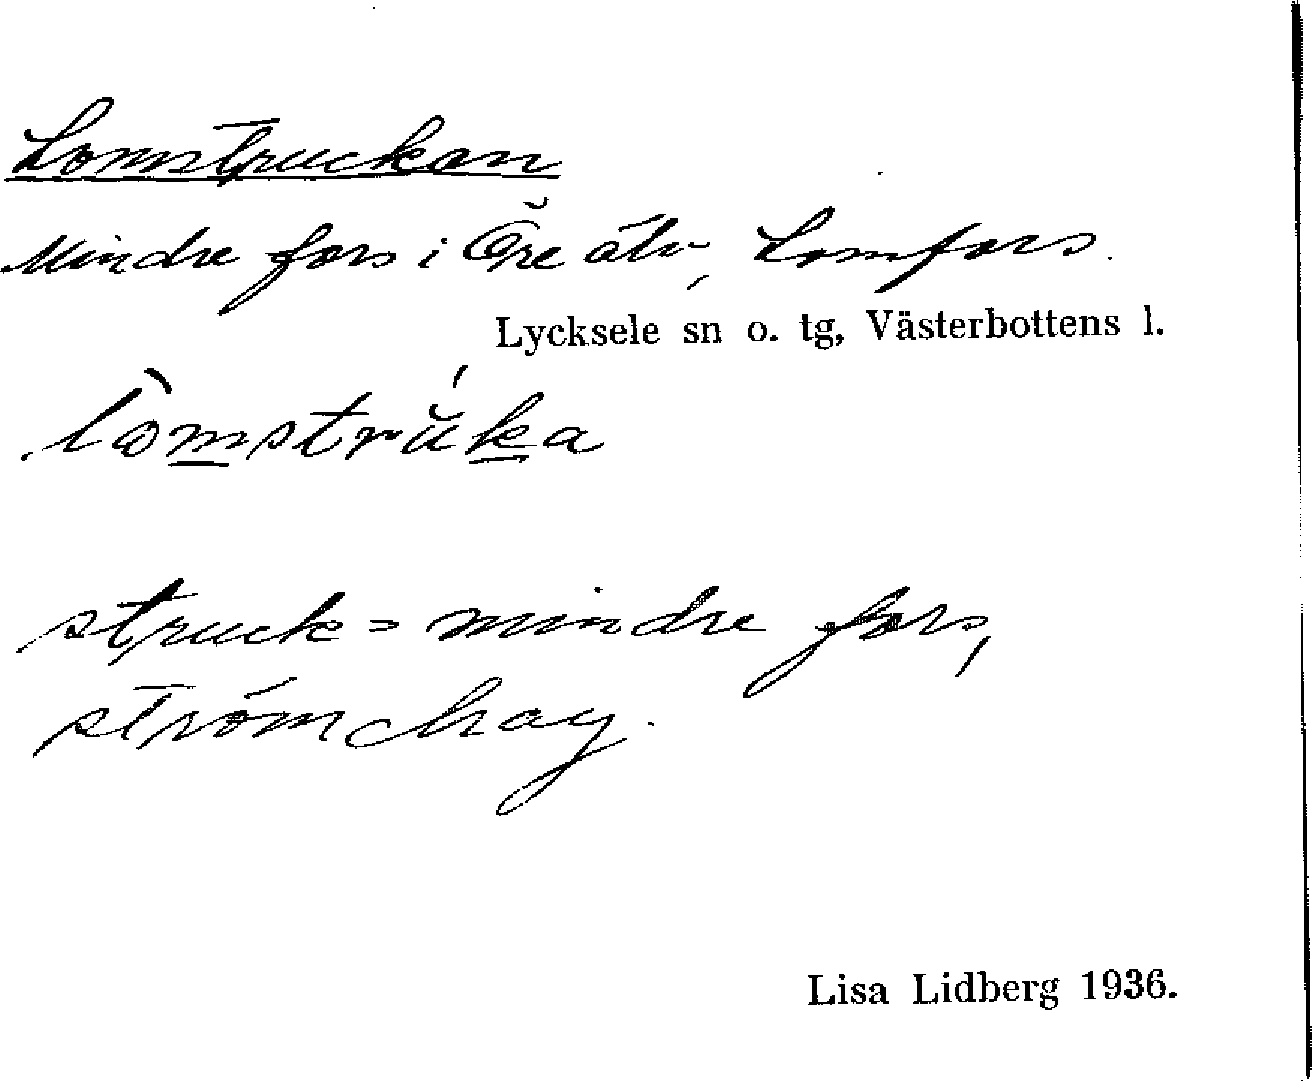 Lomstrucken
Mindre fors i Öre älv, Lomfors.
Lycksele sn o. tg, Västerbottens l.
lòmstrŭ́ka
struck = mindre fors,
strömdrag.
Lisa Lidberg 1936.